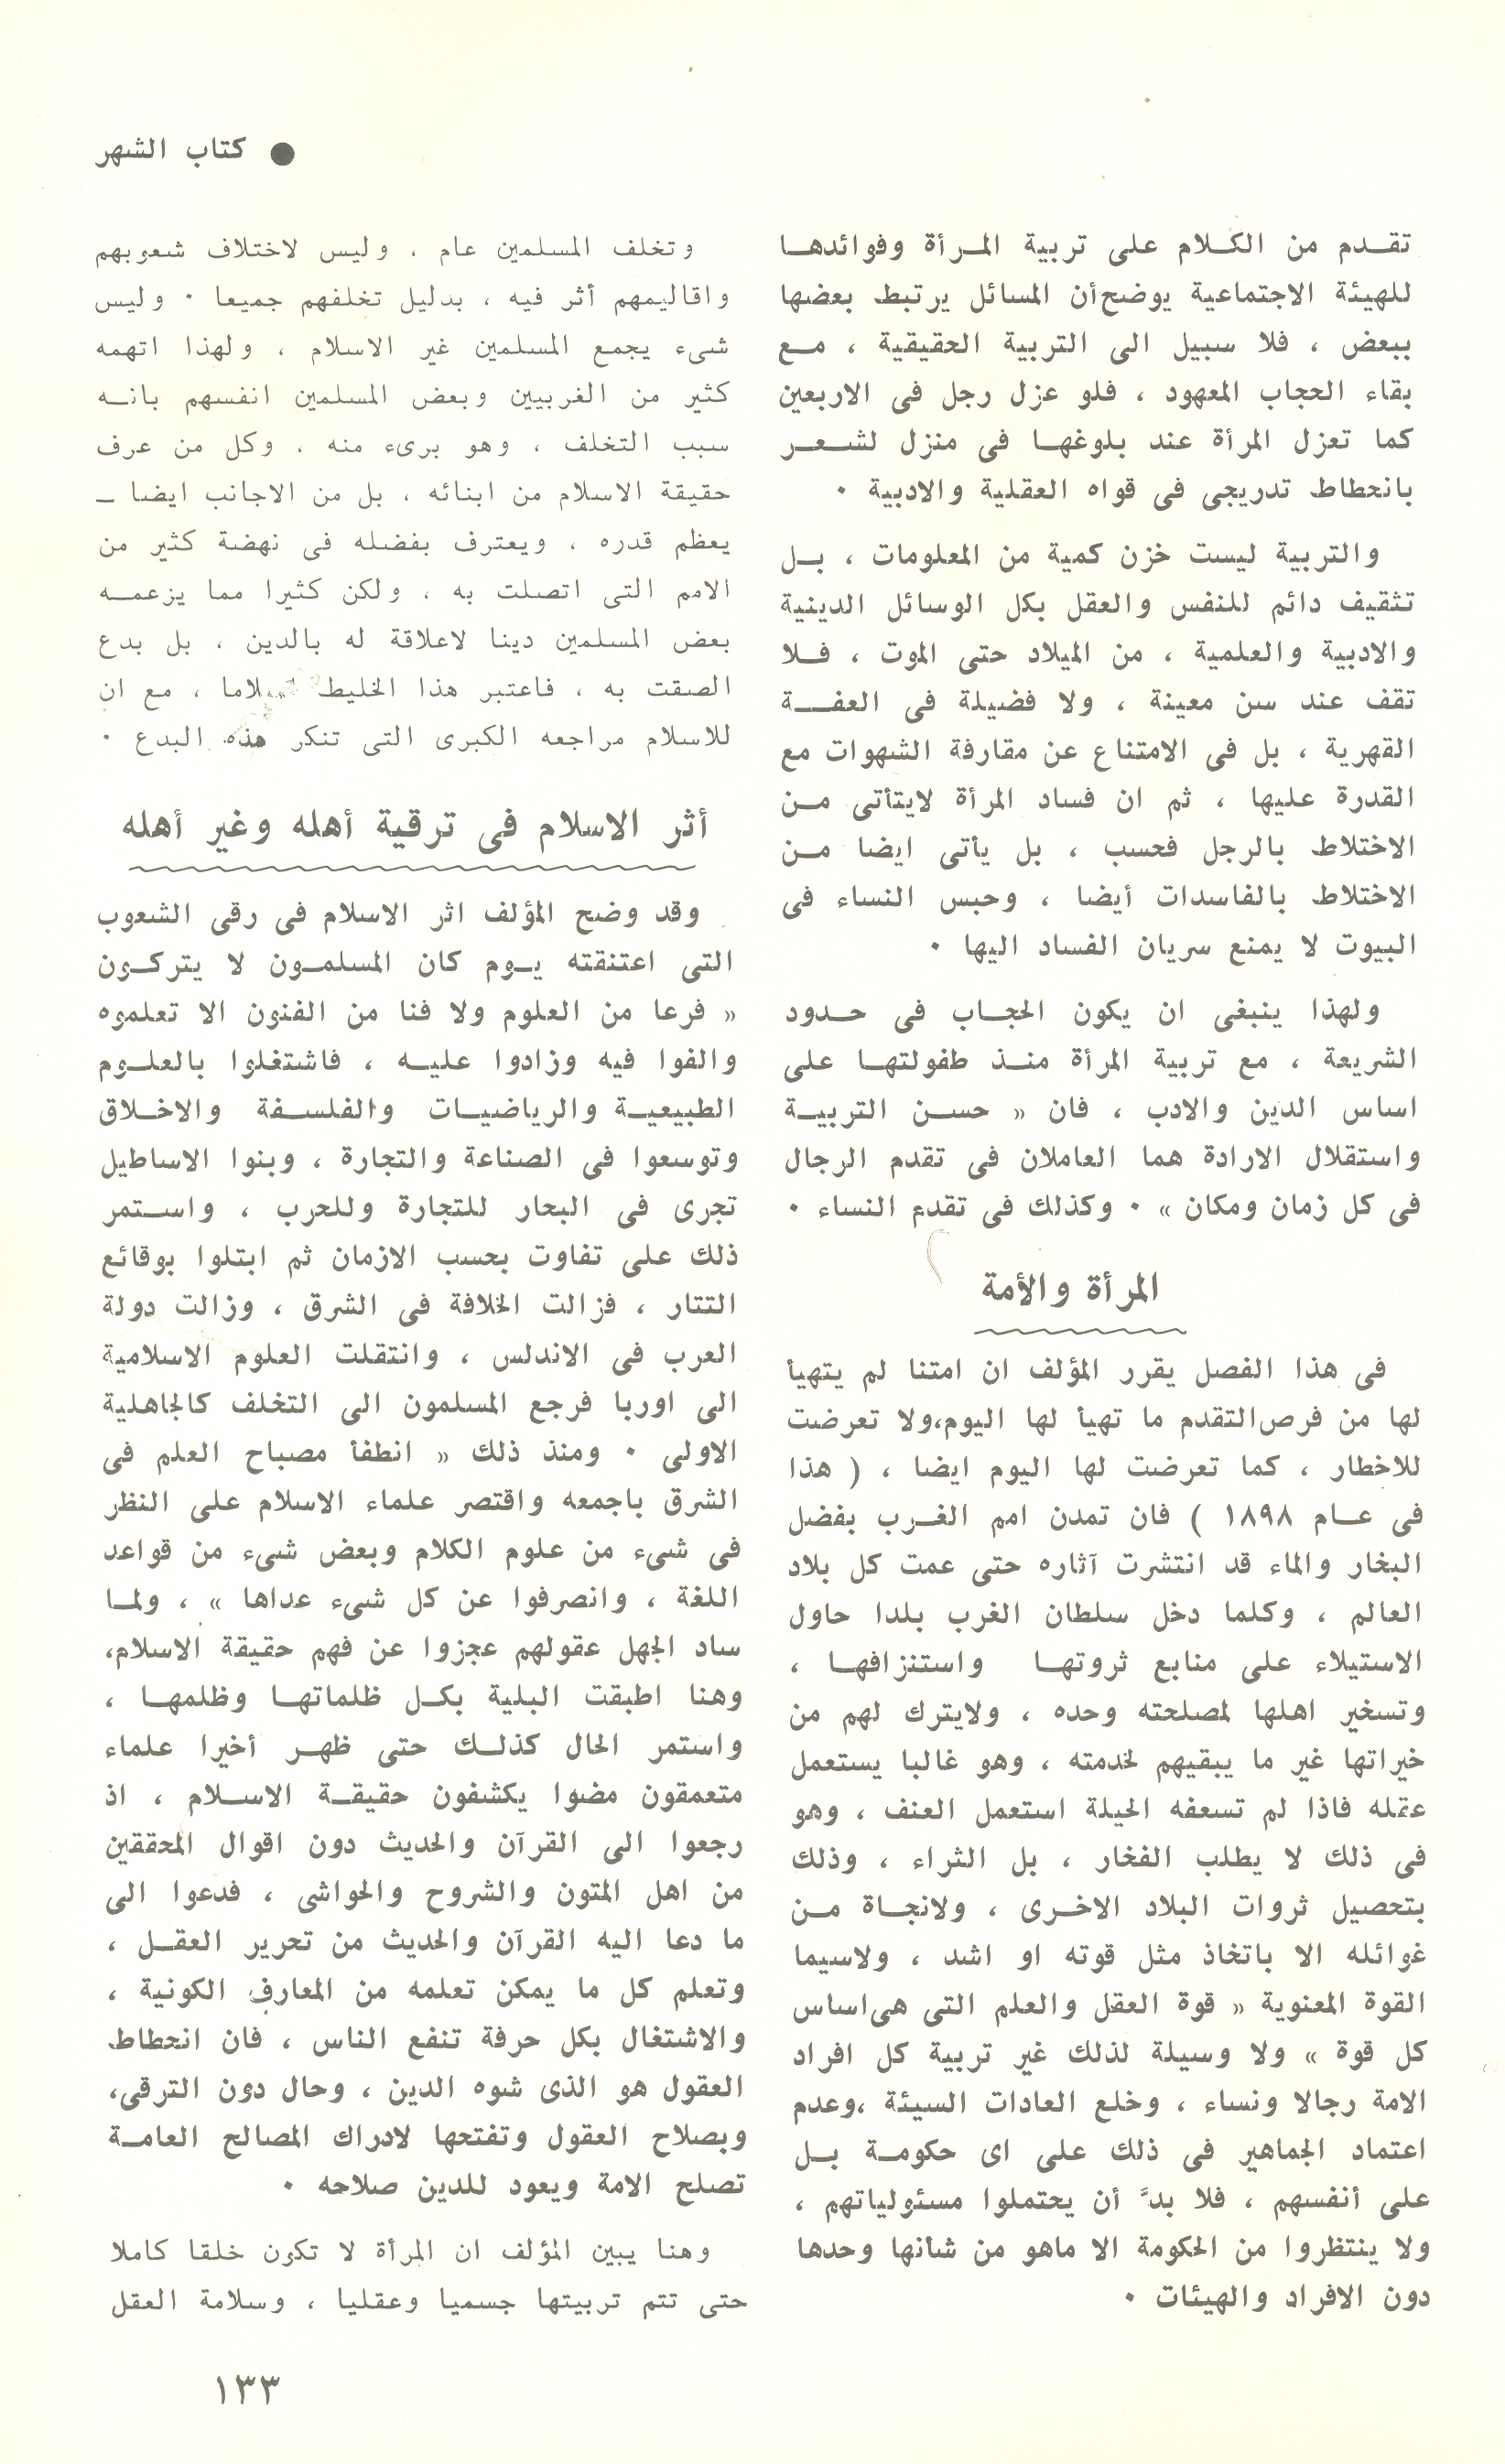 ● كتاب الشهر
تقدم من الكلام على تربية المرأة وفوائدها
للهيئة الاجتماعية يوضح أن المسائل يرتبط بعضها
ببعض ، فلا سبيل الى التربية الحقيقية ، مع
بقاء الحجاب المعهود ، فلو عزل رجل فى الاربعين
كما تعزل المرأة عند بلوغها فى منزل لشعر
بانحطاط تدريجى فى قواه العقلية والادبية ٠
والتربية ليست خزن كمية من المعلومات ، بل
تثقيف دائم للنفس والعقل بكل الوسائل الدينية
والادبية والعلمية ، من الميلاد حتى الموت ، فلا
تقف عند سن معينة ، ولا فضيلة فى العفة
القهرية ، بل فى الامتناع عن مقارفة الشهوات مع
القدرة عليها ، ثم ان فساد المرأة لايتأتى من
الاختلاط بالرجل فحسب ، بل يأتى ايضا من
الاختلاط بالفاسدات أيضا ، وحبس النساء فى
البيوت لا يمنع سريان الفساد اليها ٠
ولهذا ينبغى ان يكون الحجاب فى حدود
الشريعة ، مع تربية المرأة منذ طفولتها على
اساس الدين والادب ، فان « حسن التربية
واستقلال الارادة هما العاملان فى تقدم الرجال
فى كل زمان ومكان » ٠ وكذلك فى تقدم النساء ٠
المرأة والأمة
فى هذا الفصل يقرر المؤلف ان امتنا لم يتهيأ
لها من فرص التقدم ما تهيأ لها اليوم،ولا تعرضت
للاخطار ، كما تعرضت لها اليوم ايضا ، ( هذا
فى عام ١٨٩٨ ) فان تمدن امم الغرب بفضل
البخار والماء قد انتشرت آثاره حتى عمت كل بلاد
العالم ، وكلما دخل سلطان الغرب بلدا حاول
الاستيلاء على منابع ثروتها واستنزافها ،
وتسخير اهلها لمصلحته وحده ، ولايترك لهم من
خيراتها غير ما يبقيهم لخدمته ، وهو غالبا يستعمل
عقله فاذا لم تسعفه الحيلة استعمل العنف ، وهو
فى ذلك لا يطلب الفخار ، بل الثراء ، وذلك
بتحصيل ثروات البلاد الاخرى ، ولانجاة من
غوائله الا باتخاذ مثل قوته او اشد ، ولاسيما
القوة المعنوية « قوة العقل والعلم التى هى اساس
كل قوة » ولا وسيلة لذلك غير تربية كل افراد
الامة رجالا ونساء ، وخلع العادات السيئة ،وعدم
اعتماد الجماهير فى ذلك على اى حكومة بل
على أنفسهم ، فلا بدَّ أن يحتملوا مسئولياتهم ،
ولا ينتظروا من الحكومة الا ماهو من شأنها وحدها
دون الافراد والهيئات ٠
وتخلف المسلمين عام ، وليس لاختلاف شعوبهم
واقاليمهم أثر فيه ، بدليل تخلفهم جميعا ٠ وليس
شىء يجمع المسلمين غير الاسلام ، ولهذا اتهمه
كثير من الغربيين وبعض المسلمين انفسهم بانه
سبب التخلف ، وهو برىء منه ، وكل من عرف
حقيقة الاسلام من ابنائه ، بل من الاجانب ايضا ـ
يعظم قدره ، ويعترف بفضله فى نهضة كثير من
الامم التى اتصلت به ، ولكن كثيرا مما يزعمه
بعض المسلمين دينا لاعلاقة له بالدين ، بل بدع
الصقت به ، فاعتبر هذا الخليط اسلاما ، مع ان
للاسلام مراجعه الكبرى التى تنكر هذه البدع ٠
أثر الاسلام فى ترقية أهله وغير أهله
وقد وضح المؤلف اثر الاسلام فى رقى الشعوب
التى اعتنقته يوم كان المسلمون لا يتركون
« فرعا من العلوم ولا فنا من الفنون الا تعلموه
والفوا فيه وزادوا عليه ، فاشتغلوا بالعلوم
الطبيعية والرياضيات والفلسفة والاخلاق
وتوسعوا فى الصناعة والتجارة ، وبنوا الاساطيل
تجرى فى البحار للتجارة وللحرب ، واستمر
ذلك على تفاوت بحسب الازمان ثم ابتلوا بوقائع
التتار ، فزالت الخلافة فى الشرق ، وزالت دولة
العرب فى الاندلس ، وانتقلت العلوم الاسلامية
الى اوربا فرجع المسلمون الى التخلف كالجاهلية
الاولى ٠ ومنذ ذلك « انطفأ مصباح العلم فى
الشرق باجمعه واقتصر علماء الاسلام على النظر
فى شىء من علوم الكلام وبعض شىء من قواعد
اللغة ، وانصرفوا عن كل شىء عداها » ، ولما
ساد الجهل عقولهم عجزوا عن فهم حقيقة الاسلام،
وهنا اطبقت البلية بكل ظلماتها وظلمها ،
واستمر الحال كذلك حتى ظهر أخيرا علماء
متعمقون مضوا يكشفون حقيقة الاسلام ، اذ
رجعوا الى القرآن والحديث دون اقوال المحققين
من اهل المتون والشروح والحواشى ، فدعوا الى
ما دعا اليه القرآن والحديث من تحرير العقل ،
وتعلم كل ما يمكن تعلمه من المعارف الكونية ،
والاشتغال بكل حرفة تنفع الناس ، فان انحطاط
العقول هو الذى شوه الدين ، وحال دون الترقى،
وبصلاح العقول وتفتحها لادراك المصالح العامة
تصلح الامة ويعود للدين صلاحه ٠
وهنا يبين المؤلف ان المرأة لا تكون خلقا كاملا
حتى تتم تربيتها جسميا وعقليا ، وسلامة العقل
١٣٣